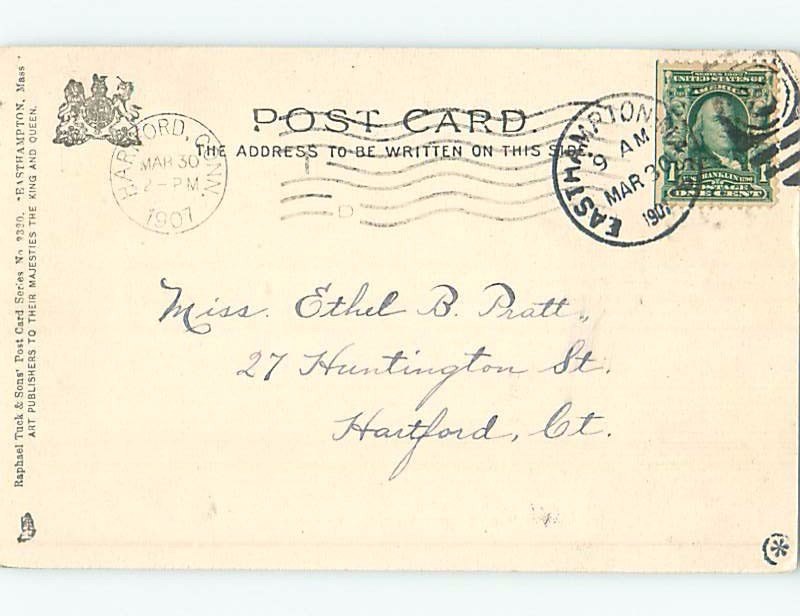 POST CARD.
THE ADDRESS TO BE WRITTEN ON THIS SIDE.
HARTFORD, CONN.
MAR 30
2 - PM
1907
D
EASTHAMPTON
9 AM
MAR 30
1907
SERIES 1902
UNITED STATES OF
AMERICA
FRANKLIN
POSTAGE
1 1
ONE CENT
Miss. Ethel B. Pratt.
27 Huntington St.
Hartford, Ct.
Raphael Tuck & Sons' Post Card Series No. 2320. "EASTHAMPTON, Mass
ART PUBLISHERS TO THEIR MAJESTIES THE KING AND QUEEN.